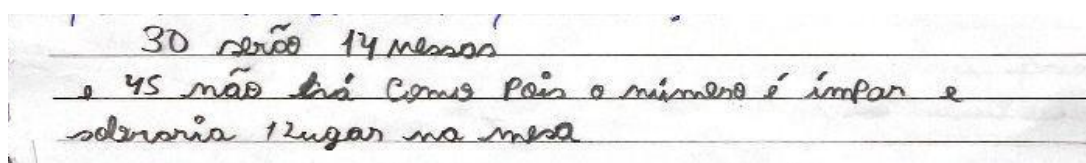 30 serão 14 messas
e 45 não há como pois o número é ímpar e
sobraria 1 lugar na mesa